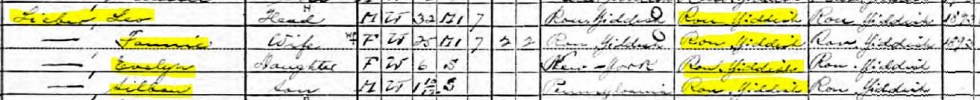 Lieber, Leo Head M W 32 M1 7 Rou Yiddish Rou Yiddish Rou Yiddish
— Fannie Wife F W 25 M1 7 2 2 Rou Yiddish Rou Yiddish Rou Yiddish
— Evelyn Daughter F W 6 S New York Rou Yiddish Rou Yiddish
— Son M W S Pennsylvania Rou Yiddish Rou Yiddish